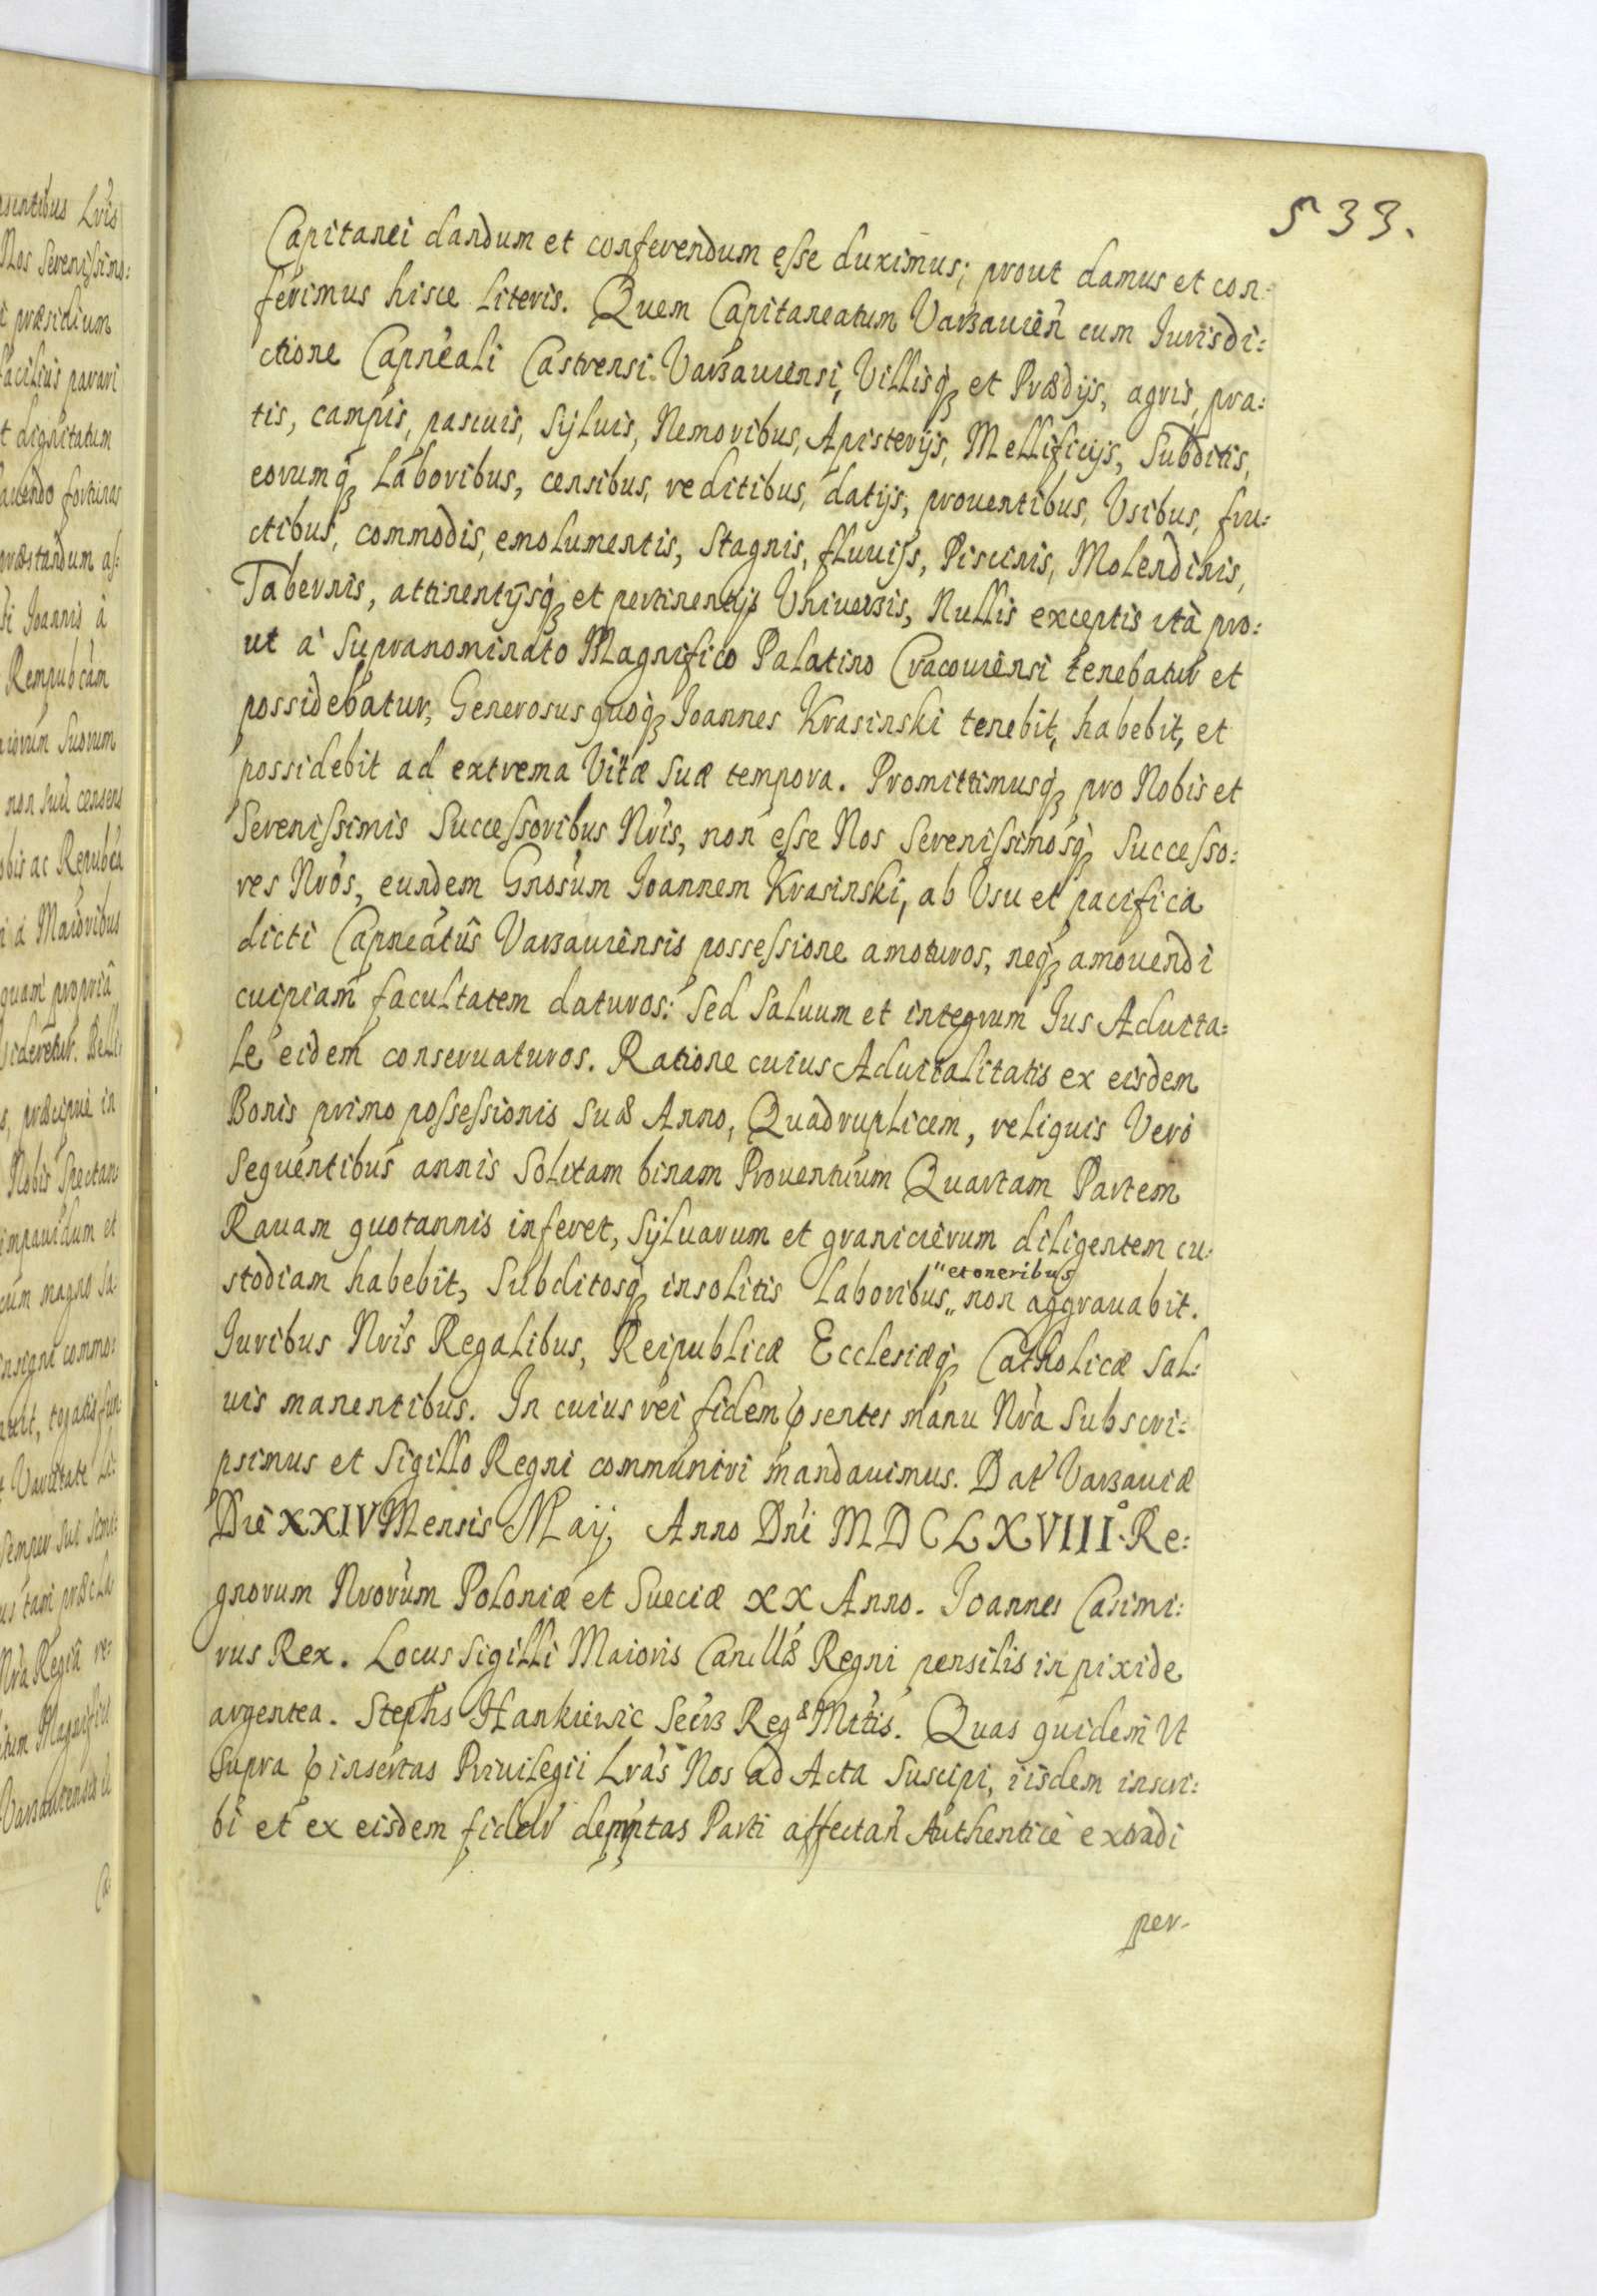 533.
Capitanei dandum et conferendum esse duximus; prout damus et con:
ferimus hisce Literis. Quem Capitaneatum Varsauien̄ cum Iurisdi:
ctione Capneali Castrensi Varsauiensi, Villisq́ʒ et Prædijs, agris, pra:
tis, campis, pascuis, Syluis, Nemoribus, Apisterijs, Mellificijs, Subditis,
eorumq́ʒ Laboribus, censibus, reditibus, datijs, prouentibus, Vsibus, fru:
ctibus, commodis, emolumentis, Stagnis, fluuijs, Piscinis, Molendinis,
Tabernis, attinentijsq́ʒ et pertinentijs Vniuersis, Nullis exceptis ità pro:
ut à Supranominato Magnifico Palatino Cracouiensi tenebatur et
possidebatur, Generosus quoq́ʒ Joannes Krasinski tenebit, habebit, et
possidebit ad extrema Vitæ Suæ tempora. Promittimusq́ʒ pro Nobis et
Serenissimis Successoribus Nr̃is, non esse Nos Serenissimosq́ʒ Successo:
res Nr̃os, eundem Gnosum Joannem Krasinski, ab Vsu et pacifica
dicti Capneatûs Varsauiensis possessione amoturos, neq́ʒ amouendi
cuipiam facultatem daturos: Sed Saluum et integrum Jus Aduita:
Le eidem conseruaturos. Ratione cuius Aduitalitatis ex eisdem
Bonis primo possessionis Suæ Anno, Quadruplicem, reliquis Verò
Sequentibus annis Solitam binam Prouentuum Quartam Partem
Rauam quotannis inferet, Syluarum et granicierum diligentem cu:
stodiam habebit, Subditosq́ʒ insolitis Laboribus „ et oneribus „ non aggrauabit.
Juribus Nr̃is Regalibus, Reipublicæ Ecclesiæq́ʒ Catholicæ Sal:
uis manentibus. In cuius rei fidem p̃sentes manu Nr̃a Subscri:
psimus et Sigillo Regni communiri mandauimus. Dat̃ Varsauiæ
Die XXIV Mensis Maij, Anno Dñi MDCLXVIIIº. Re:
gnorum Nr̃orum Poloniæ et Sueciæ XX Anno. Joannes Casimi:
rus Rex. Locus Sigilli Maioris Cancllæ Regni pensilis in pixide
argentea. Stephs Hankiewic Secrʒ Regæ Mttis. Quas quidem Vt
Supra p̃insertas Priuilegii Lr̃as Nos ad Acta Suscipi, iisdem inscri:
bi et ex eisdem fidelr̃ demptas Parti affectan̄ Authenticè extradi
per-